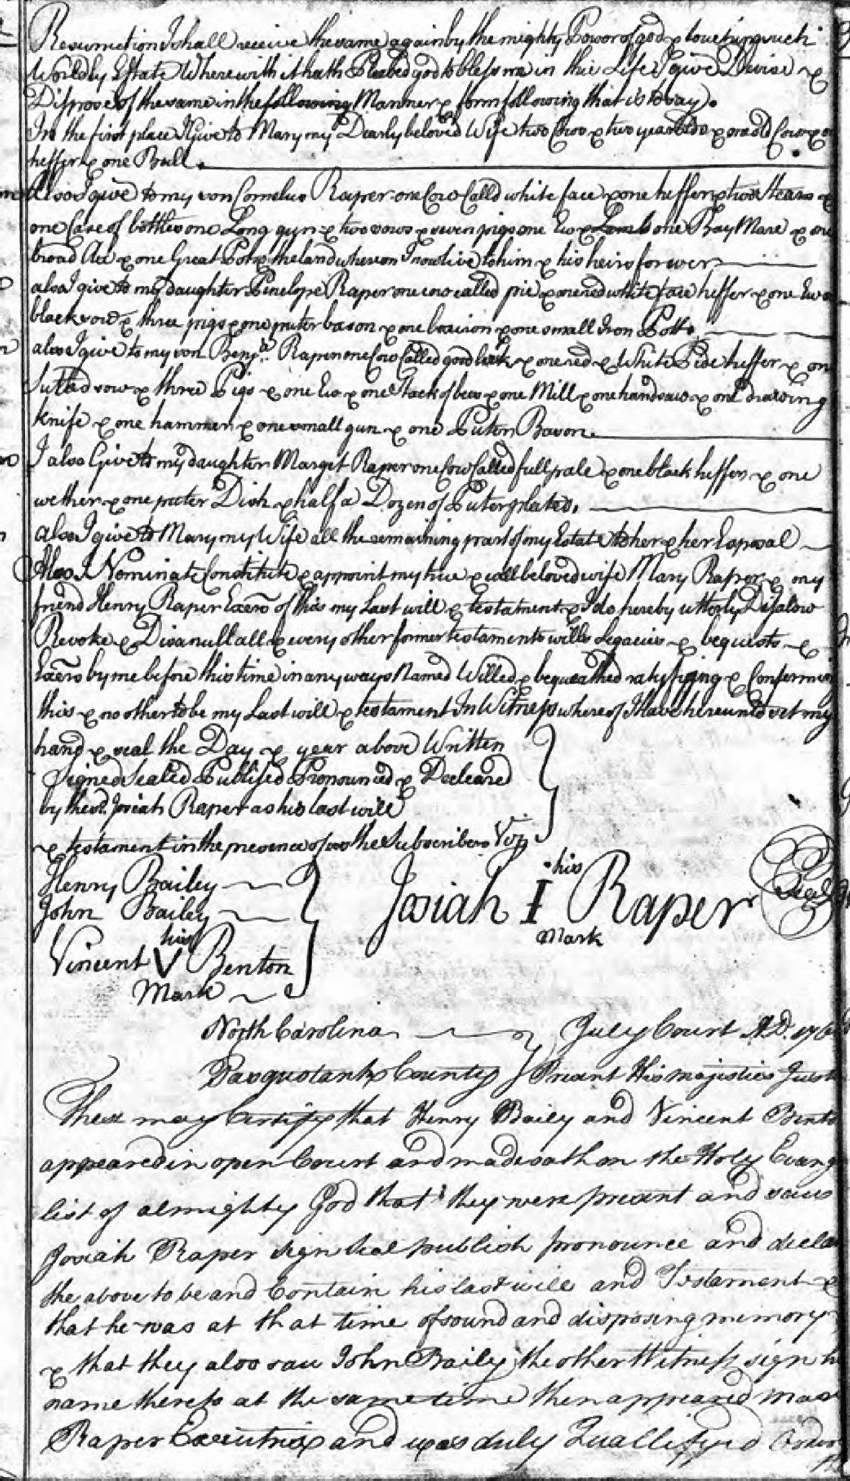 Resurrection I shall receive the same again by the mighty Power of god & touching such
Worldly Estate Wherewith it hath Pleased god to bless me in this Life I give Devise &
Dispose of the same in the following Manner & form following that is to say.
In the first place I Give to Mary my Dearly beloved Wife two Cows & two year olds & one old Cow &
heffer & one Bull.
Also I give to my son Cornelius Raper one Cow Calld white face & one heffer & two Stears &
one Case of bottles one Long gun & two sows & seven pigs one Ew & Lamb one Bay Mare & one
broad Ax & one Great Pot & the land whereon I now live to him & his heirs forever
also I give to my daughter Penelope Raper one cow called pie & one red white face heffer & one Ew
black sow & three pigs & one puter bason & one & one small Iron Pott
also I give to my son Benj. Raper one Cow Called good luck & one red & White Pide heffer & on
sow & three Pigs & one Ew & one Stack of bees & one Mill & one handsaw & one drawing
knife & one hammer & one small gun & one Puter Bason.
I also Give to my daughter Marget Raper one Cow Called full pale & one black heffer & one
wether & one puter Dish & half a Dozen of Puter plates.
also I give to Mary my Wife all the remaining part of my Estate to her & her
Also I Nominate Constitute & appoint my true & well beloved wife Mary Raper & my
friend Henry Raper Exers of this my Last will & testament & I do hereby utterly Disalow
Revoke & Disanull all & every other former testaments wills Legacies & bequests &
Exers by me before this time in any ways Named Willed & bequeathed ratifying & Conferming
this & no other to be my Last will & testament In Witness whereof I have hereunto set my
hand & seal the Day & year above Written
Signed Sealed Publised Pronounced & Decleared
by the sd. Josiah Raper as his last will
& testament in the presence of us the Subscribers Viz
Henry Bailey
John Bailey
his
Vincent V Benton
Mark
his
Josiah I Raper Seal
Mark
North Carolina July Court A.D. 176
Pasquotank County Present His majesties Just
These may Certify that Henry Baily and Vincent Bento
appeared in open Court and made oath on the Holy Evang
list of almighty God that they were present and saw
Josiah Raper sign seal publish pronounce and decla
the above to be and Contain his last will and Testament &
that he was at that time of sound and disposing memory
& that they also saw John Baily the other Witness sign h
name thereto at the same time then appeared Mar
Raper Executrix and was duly Quallifyed